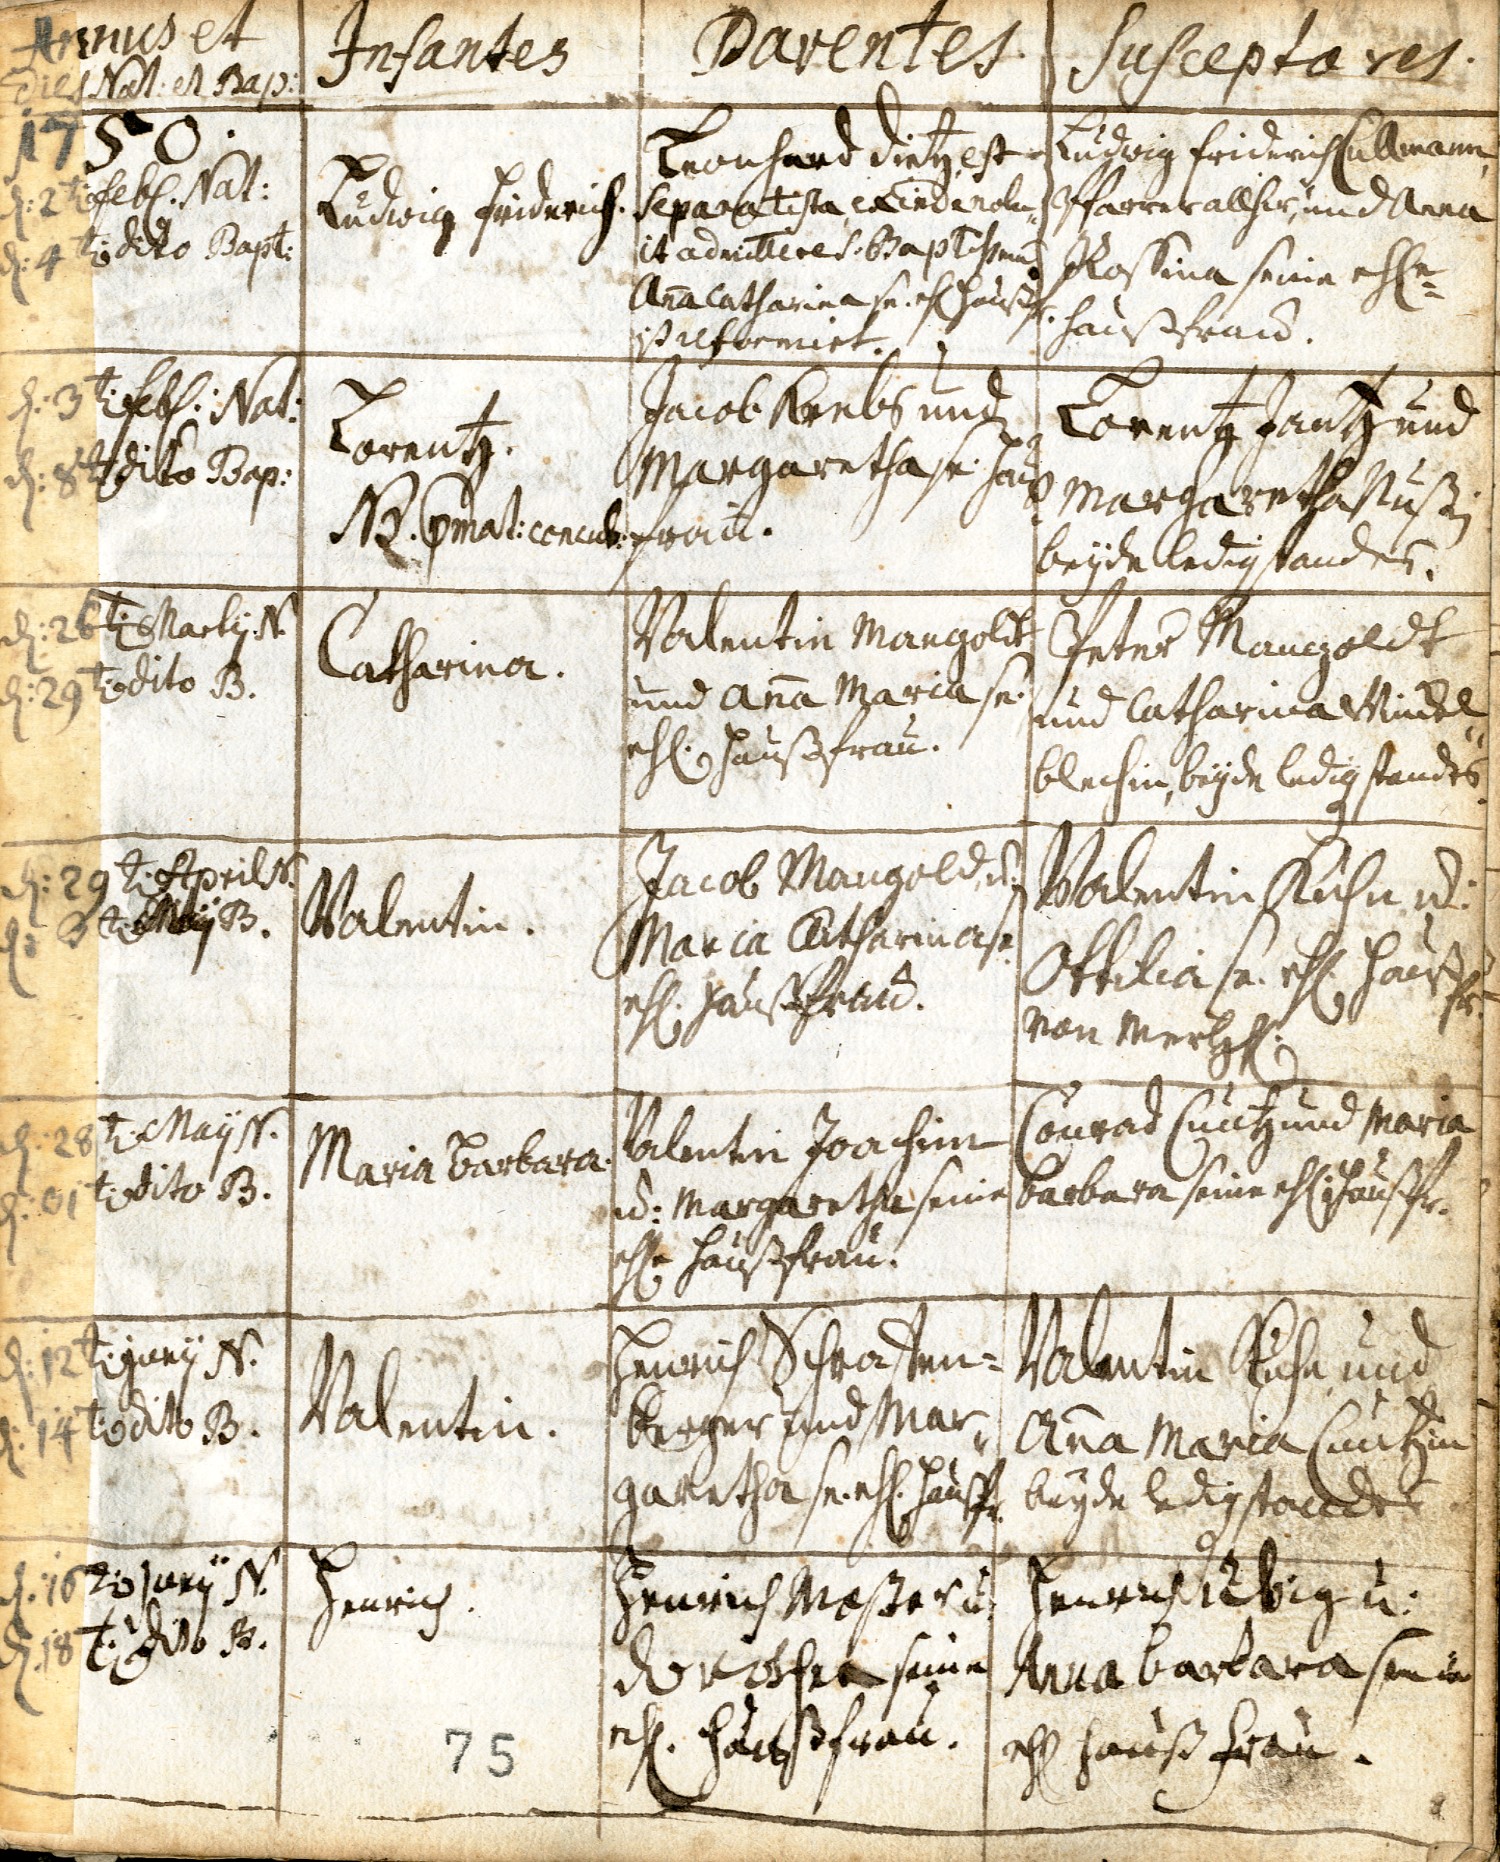 Annus et
Dies Nat: et Bap:
Infantes
Parentes.
Susceptores.
1750.
d: 2t: febr. Nat:
d: 4t: dito Bapt:
Ludwig Friderich.
Leonhard Dietz, est
separatista, exinde nolu-
it admittere S. Baptismũ
Aña Catharina se. ehl. haußfr.
ist reformirt.
Ludwig Friderich Cullmann,
Pfarrer allhier, und Anna
Rossina seine ehl=
haußfrau.
d: 3t: febr: Nat:
d: 8t dito Bap:
Lorentz.
NB. concub:
Jacob Krebs und
Margaretha se. hauß
frau.
Lorentz Jantz und
Margaretha
beyde ledig standes.
d: 26t: Martij. N.
d: 29t: dito B.
Catharina.
Valentin Mangoldt
und Aña Maria se.
ehl. haußfrau.
Peter Mangoldt
und Catharina Windel
blechin, beyde ledig standes
d: 29t: April N.
d: 3t: Maij B.
Valentin.
Jacob Mangold, u.
Maria Catharina se.
ehl. haußfrau.
Valentin Kuhn u:
Ottilia se. ehl. hauß
fr.
von
d: 28t: Maij N.
d: 31t: dito B.
Maria Barbara.
Valentin Joachim
u: Margaretha seine
ehl= haußfrau.
Conrad Cuntz und Maria
Barbara seine ehl: haußfr.
d: 12t: Junij N.
d: 14t: dito B.
Valentin.
Henrich Schrasten=
berger und Mar,,
garetha se. ehl. haußfr.
Valentin Kuhn und
Aña Maria Cuntzin
beyde ledig standes
d: 16t: Junij N.
d: 18t: dito B.
Henrich.
Henrich u.
Dorothea seine
ehl. haußfrau.
Henrich u:
Anna Barbara seine
ehl haußfrau.
75